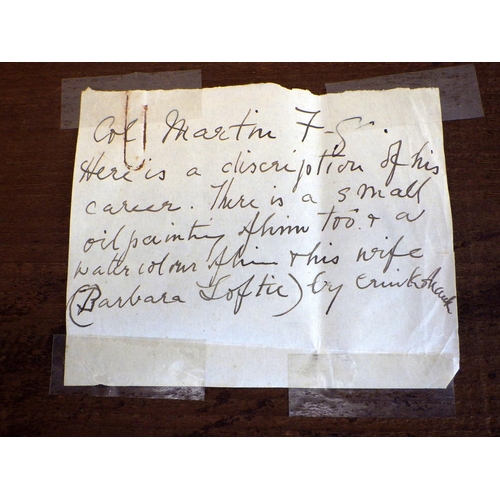 Col Martin F-G.
Here is a discription of his
career. There is a small
oil painting of him too & a
water colour of him & his wife
(Barbara Loftie) by